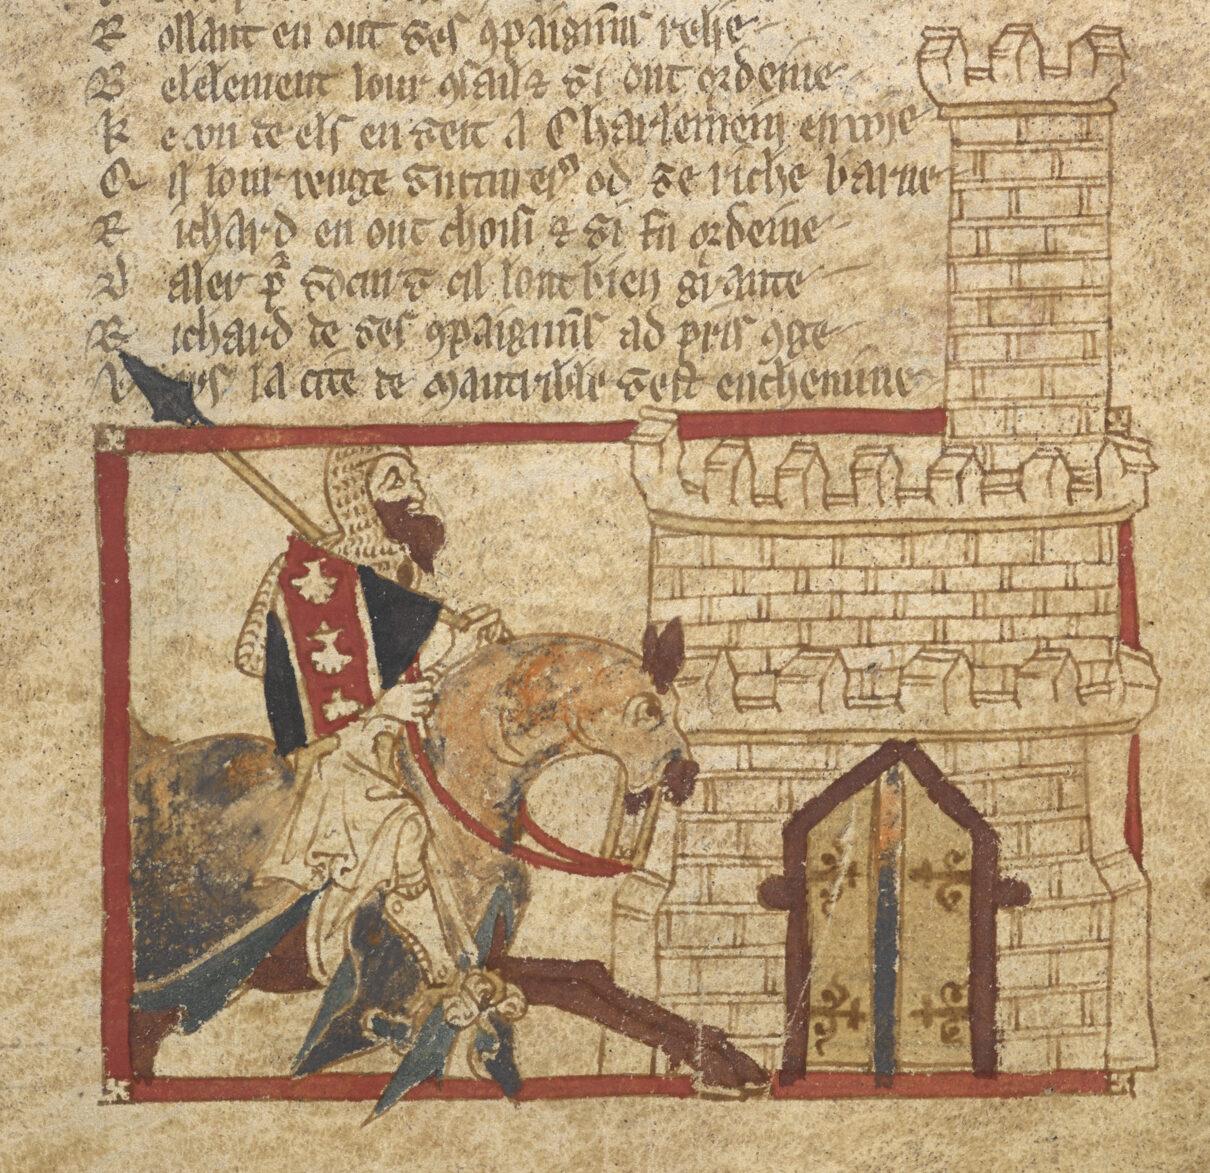 R ollant en ont ses 9paignũs relie
B elelement lour 9sail ⁊ si ont ordeine
k e un de els en seit a Charlemein enuoie
Q il lour uenge sucurer od se riche barne
R ichard en ont choisi ⁊ si fu ordeine
D aler pr socurs cil lont bien gante
R ichard de ses 9paignũs ad pris 9ge
V ers la cite de mautrible sest enchemine